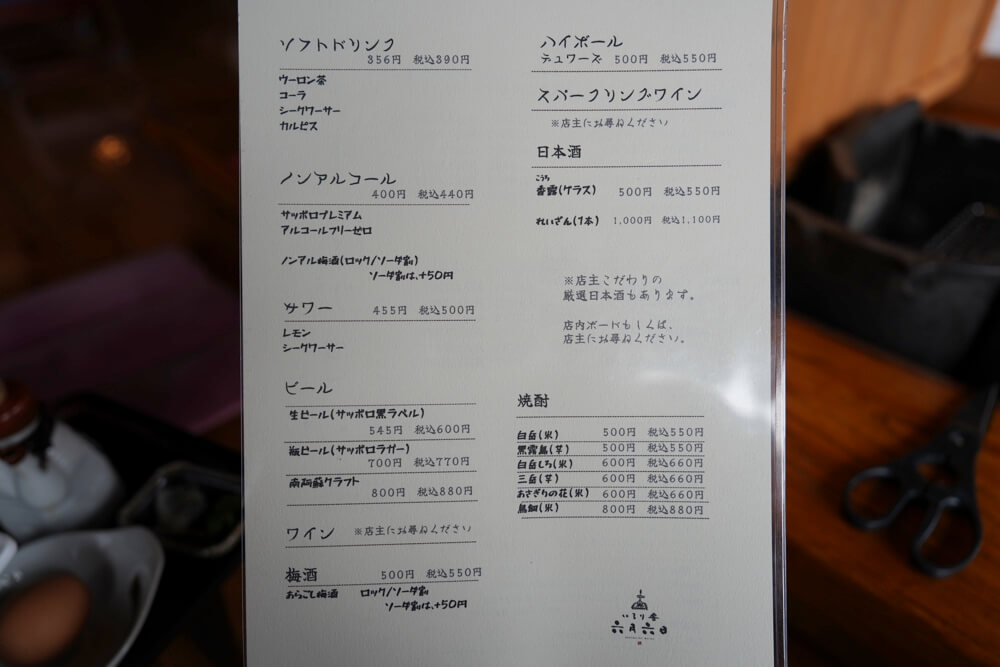 ソフトドリンク
356円 税込390円
ウーロン茶
コーラ
シークワーサー
カルピス
ノンアルコール
400円 税込440円
サッポロプレミアム
アルコールフリーゼロ
ノンアル梅酒(ロック/ソーダ割)
ソーダ割は、+50円
サワー 455円 税込500円
レモン
シークワーサー
ビール
生ビール(サッポロ黒ラベル)
545円 税込600円
瓶ビール(サッポロラガー)
700円 税込770円
南阿蘇クラフト
800円 税込880円
ワイン ※店主にお尋ねください
梅酒 500円 税込550円
あらごし梅酒 ロック/ソーダ割
ソーダ割は、+50円
ハイボール
デュワーズ 500円 税込550円
スパークリングワイン
※店主にお尋ねください
日本酒
こうろ
香露(グラス) 500円 税込550円
れいざん(1本) 1,000円 税込1,100円
※店主こだわりの
厳選日本酒もあります。
店内ボードもしくは、
店主にお尋ねください。
焼酎
白岳(米) 500円 税込550円
黒霧島(芋) 500円 税込550円
白岳しろ(米) 600円 税込660円
三岳(芋) 600円 税込660円
あさぎりの花(米) 600円 税込660円
鳥飼(米) 800円 税込880円
いろり舎
六月六日